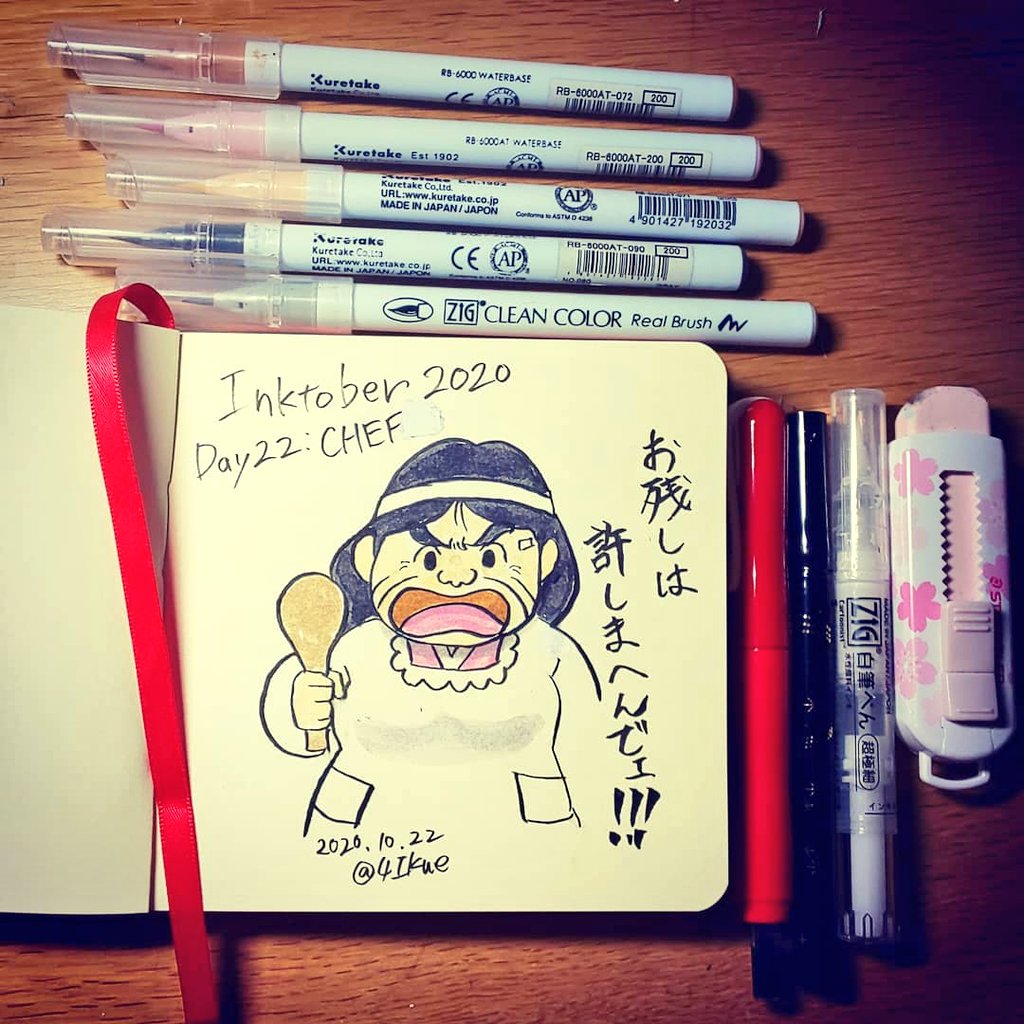 Kuretake
Kuretake Co.,Ltd.
RB-6000 WATERBASE
CE AP
RB-6000AT-072 200
Kuretake Est 1902
RB-6000AT WATERBASE
RB-6000AT-200 200
Kuretake Est.1902
Kuretake Co.,Ltd.
URL:www.kuretake.co.jp
MADE IN JAPAN / JAPON
AP
Conforms to ASTM D 4236
4 901427 192032
Kuretake
Kuretake Co.,Ltd.
URL:www.kuretake.co.jp
MADE IN JAPAN / JAPON
CE AP
RB-6000AT-090 200
ZIG CLEAN COLOR Real Brush
Inktober 2020
Day22:CHEF
お残しは
許しまへんでェ!!!
2020.10.22
@4Ikue
ZIG
Cartoonist
白筆ぺん
超極細
MADE IN JAPAN